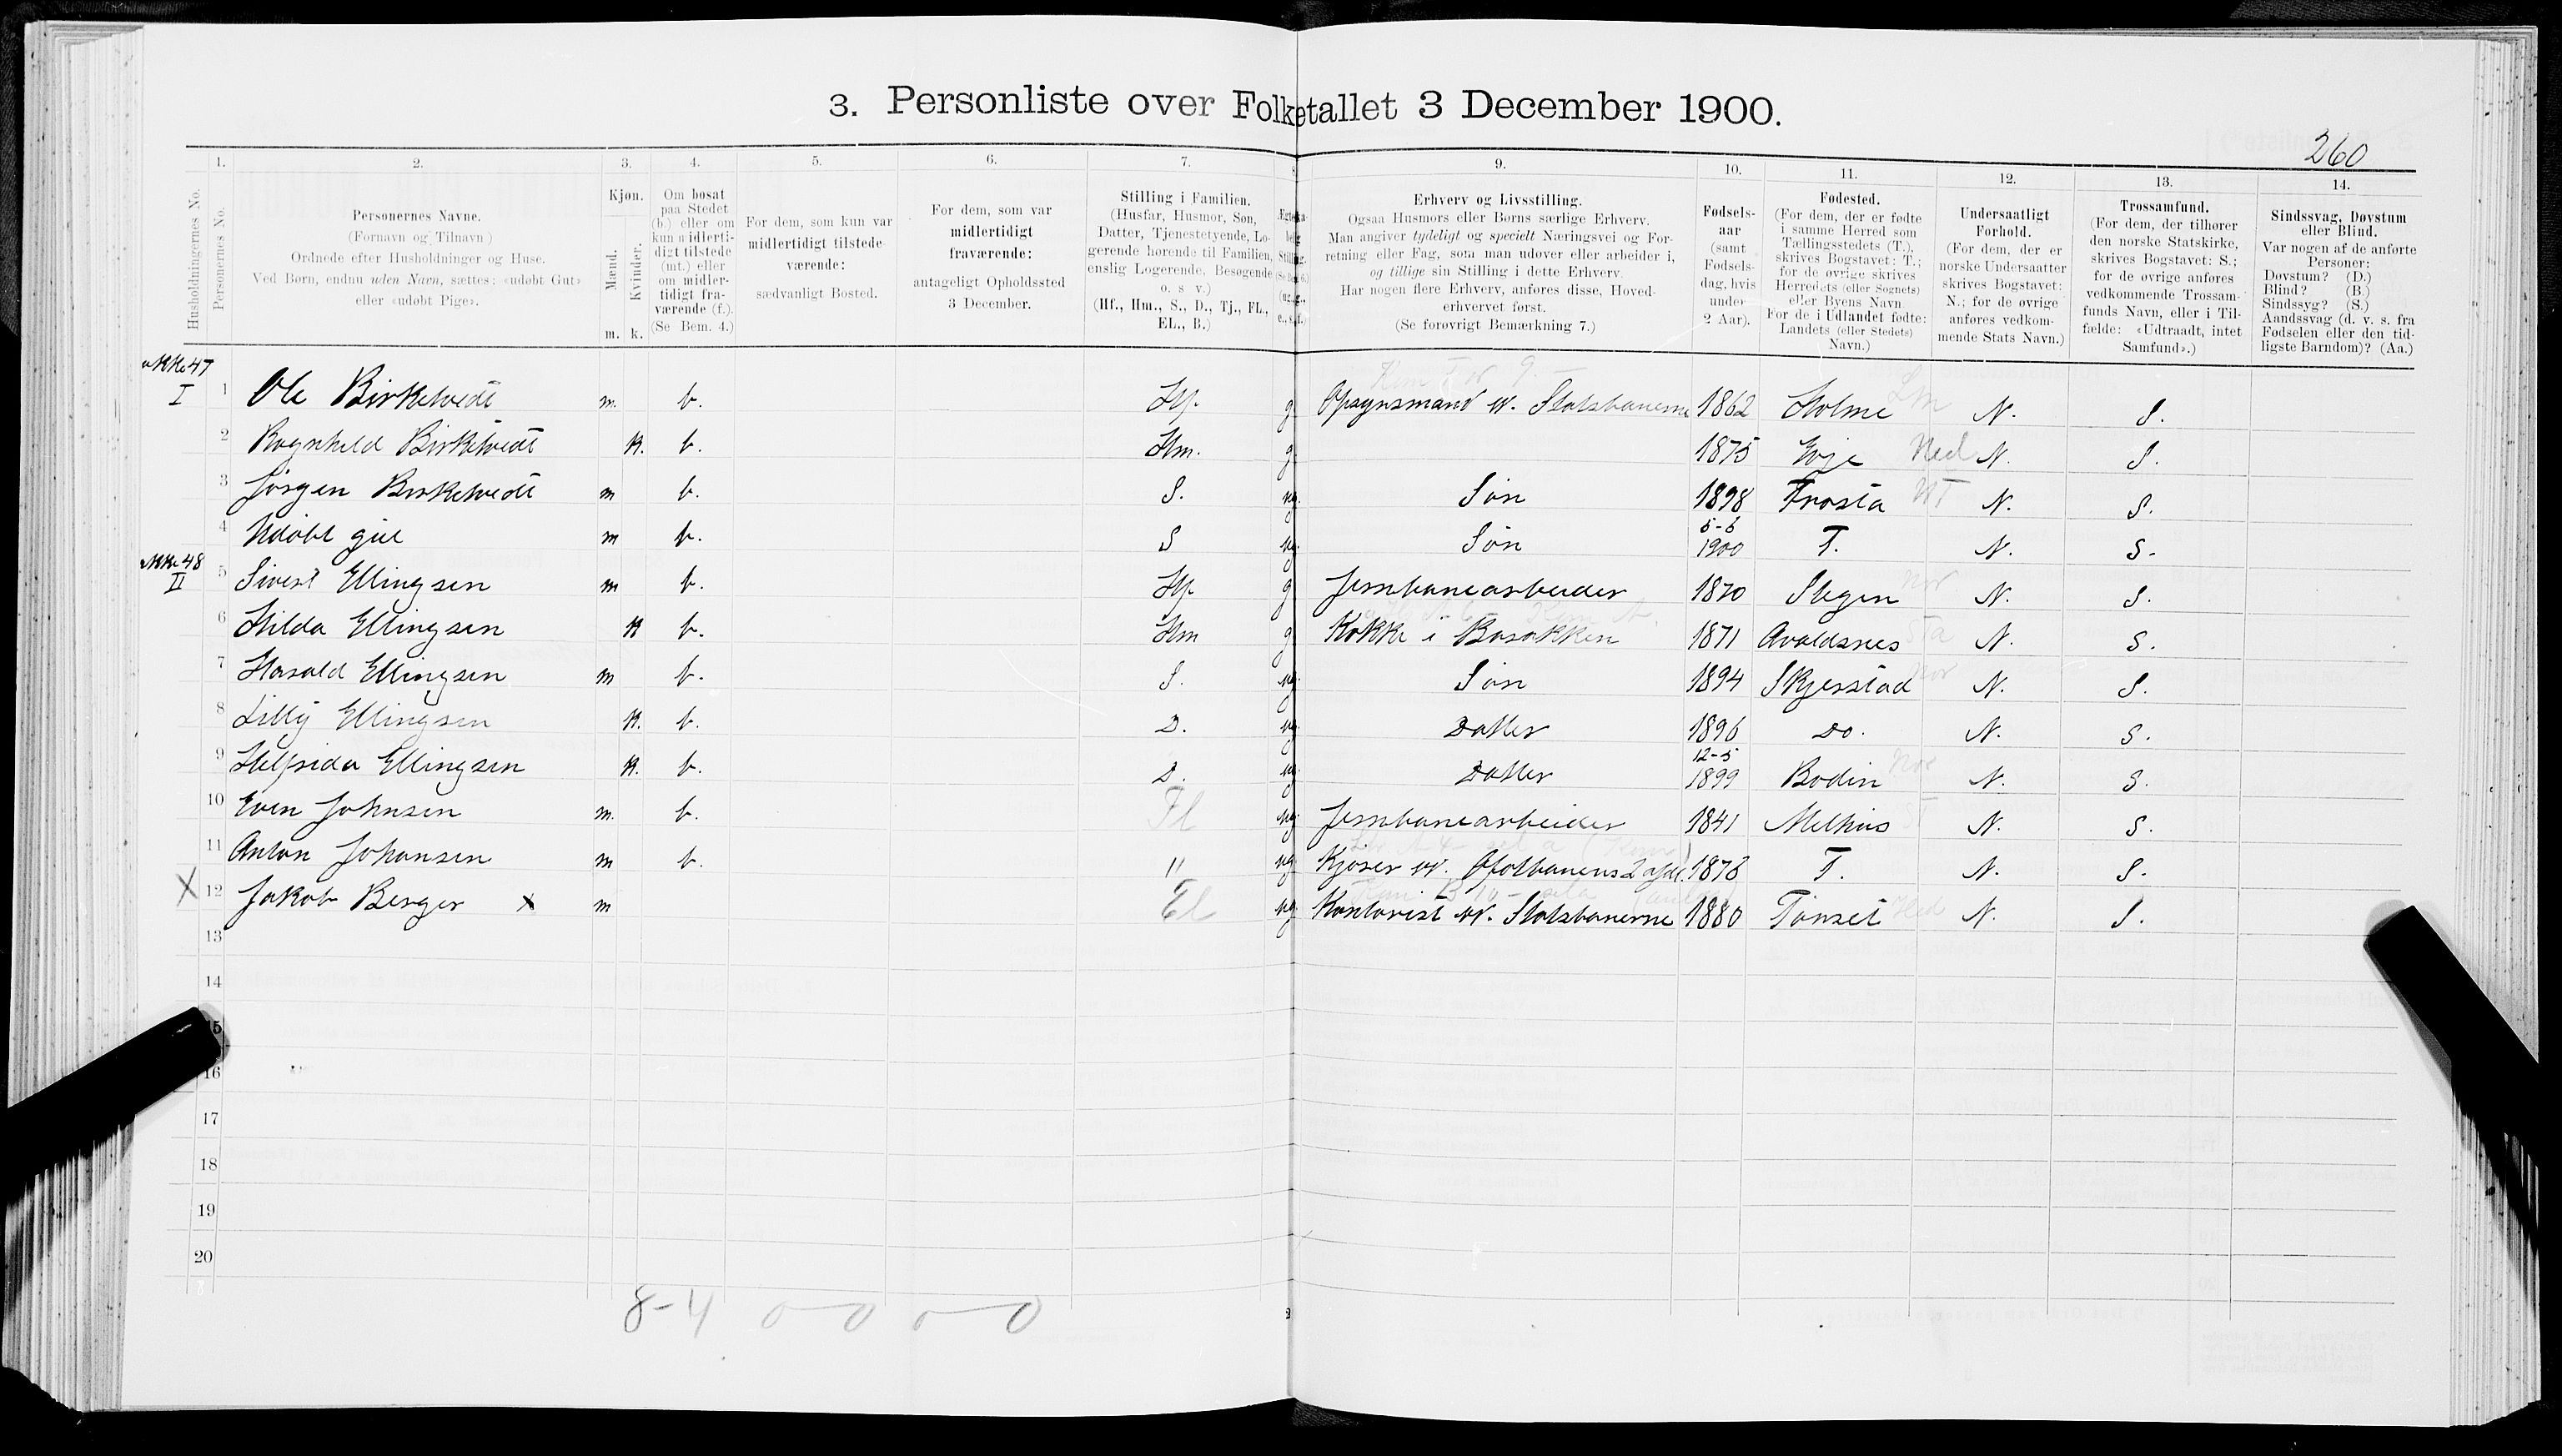 3. Personliste over Folketallet 3 December 1900.
260
1. 2. 3. 4. 5. 6. 7. 9. 10. 11. 12. 13. 14.
Husholdningernes No.
Personernes No.
Personernes Navne.
(Fornavn og Tilnavn)
Ordnede efter Husholdninger og Huse.
Ved Børn, endnu uden Navn, sættes: «udøbt Gut»
eller «udøbt Pige».
Kjøn.
Mænd.
Kvinder.
m. k.
Om bosat
paa Stedet
(b.) eller om
kun midlerti-
digt tilstede
(mt.) eller
om midler-
tidigt fra-
værende (f.).
(Se Bem. 4.)
For dem, som kun var
midlertidigt tilstede-
værende:
sædvanligt Bosted.
For dem, som var
midlertidigt
fraværende:
antageligt Opholdssted
3 December.
Stilling i Familien.
(Husfar, Husmor, Søn,
Datter, Tjenestetyende, Lo-
gerende hørende til Familien,
enslig Logerende, Besøgende
o. s. v.)
(Hf., Hm., S., D., Tj., FL.,
EL., B.)
Erhverv og Livsstilling.
Ogsaa Husmors eller Børns særlige Erhverv.
Man angiver tydeligt og specielt Næringsvei og For-
retning eller Fag, som man udøver eller arbeider i,
og tillige sin Stilling i dette Erhverv.
Har nogen flere Erhverv, anføres disse, Hoved-
erhvervet først.
(Se forøvrigt Bemærkning 7.)
Fødsels-
aar
(samt
Fødsels-
dag, hvis
under
2 Aar).
Fødested.
(For dem, der er fødte
i samme Herred som
Tællingsstedets (T.),
skrives Bogstavet: T.;
for de øvrige skrives
Herredets (eller Sognets)
eller Byens Navn.
For de i Udlandet fødte:
Landets (eller Stedets)
Navn.)
Undersaatligt
Forhold.
(For dem, der er
norske Undersaatter
skrives Bogstavet:
N.; for de øvrige
anføres vedkom-
mende Stats Navn.)
Trossamfund.
(For dem, der tilhører
den norske Statskirke,
skrives Bogstavet: S.;
for de øvrige anføres
vedkommende Trossam-
funds Navn, eller i Til-
fælde: «Udtraadt, intet
Samfund».)
Sindssvag, Døvstum
eller Blind.
Var nogen af de anførte
Personer:
Døvstum? (D.)
Blind? (B.)
Sindssyg? (S.)
Aandssvag (d. v. s. fra
Fødselen eller den tid-
ligste Barndom)? (Aa.)
47
I 1 Ole Birketvedt m. b. Hf g Opsynsmand v. Statsbanerne 1862 Holme N. S.
2 Ragnhild Birketvedt k. b. Hm. g 1875 Evje Ned N. S.
3 Jørgen Birketvedt m b. S. ug. Søn 1898 Frosta NT N. S.
4 Udøbt gut m b. S ug. Søn 5-6 1900 T. N. S.
48
II 5 Sivert Ellingsen m b. Hf g Jernbanearbeider 1870 Stegen N. S.
6 Hilda Ellingsen k b. Hm g Kokke i Barakken 1871 Avaldsnes N. S.
7 Harald Ellingsen m b. S. ug. Søn 1894 Skjerstad N. S.
8 Lilly Ellingsen k. b. D. ug Datter 1896 Do. N. S.
9 Helfrida Ellingsen k. b. D. ug Datter 12-5 1899 Bodin N. S.
10 Even Johnsen m. b. Fl ug. Jernbanearbeider 1841 Melhus N. S.
11 Anton Johansen m b. " ug. Kjører v. Ofotbanens 2 afd. 1878 T. N. S.
X 12 Jakob Berger x m El ug Kontorist v. Statsbanerne 1880 Tønset N. S.
13
14
15
16
17
18
19
20
8-4 0 0 0 0